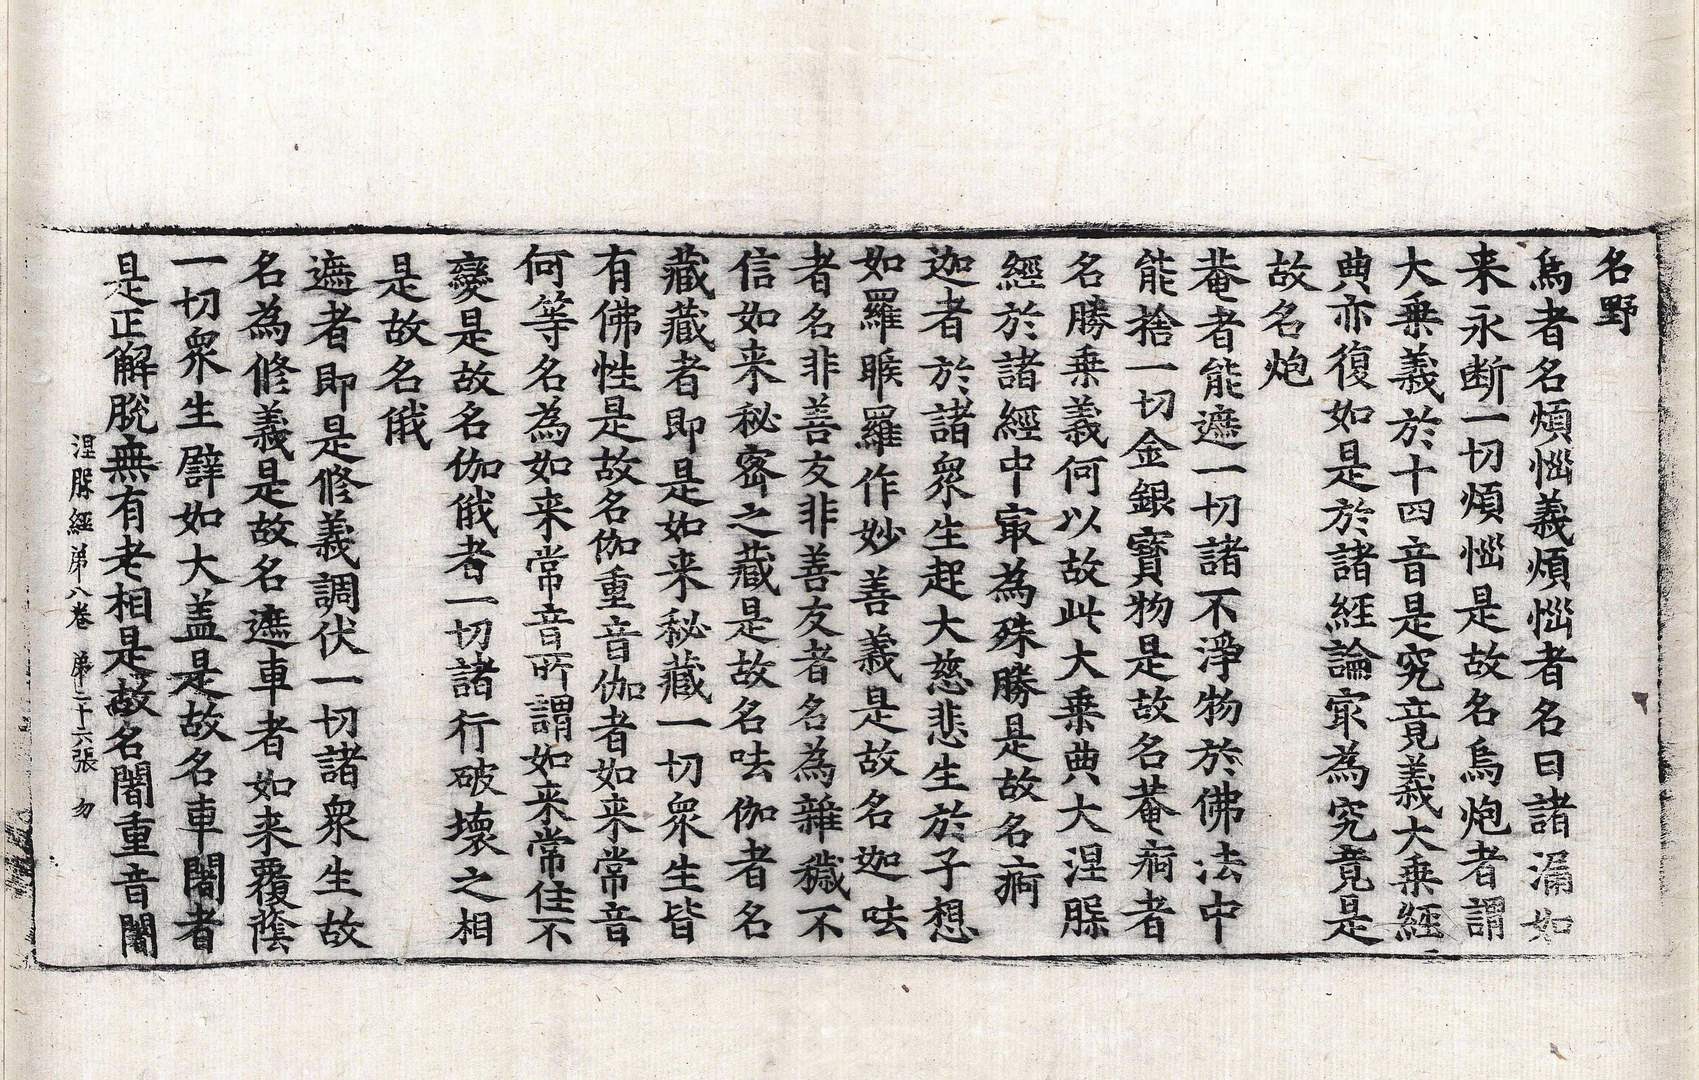 名野
烏者名煩惱義煩惱者名曰諸漏如
来永断一切煩惱是故名烏炮者謂
大乗義於十四音是究竟義大乗經
典亦復如是於諸經論㝡為究竟是
故名炮
菴者能遮一切諸不淨物於佛法中
能捨一切金銀寶物是故名菴痾者
名勝乗義何以故此大乗典大涅槃
經於諸經中㝡為殊勝是故名痾
迦者於諸衆生起大慈悲生於子想
如羅睺羅作妙善義是故名迦呿
者名非善友非善友者名為雜穢不
信如来秘密之藏是故名呿伽者名
藏藏者即是如来秘藏一切衆生皆
有佛性是故名伽重音伽者如来常音
何等名為如来常音所謂如来常住不
變是故名伽俄者一切諸行破壞之相
是故名俄
遮者即是修義調伏一切諸衆生故
名為修義是故名遮車者如来覆蔭
一切衆生譬如大盖是故名車闍者
是正解脫無有老相是故名闍重音闍
涅槃經第八卷 第二十六張 勿